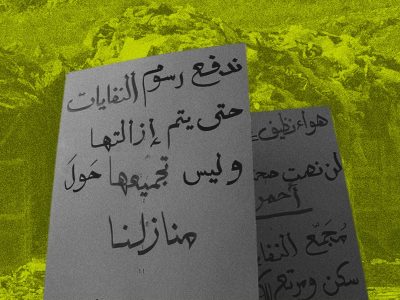 ندفع رسوم النفايات
حتى يتم إزالتها
وليس تجميعها حَولَ
منازلنا
هواء نظيف =
لن نصمت
أحمر
مُجَمّع النفايا
سكن ومرتع